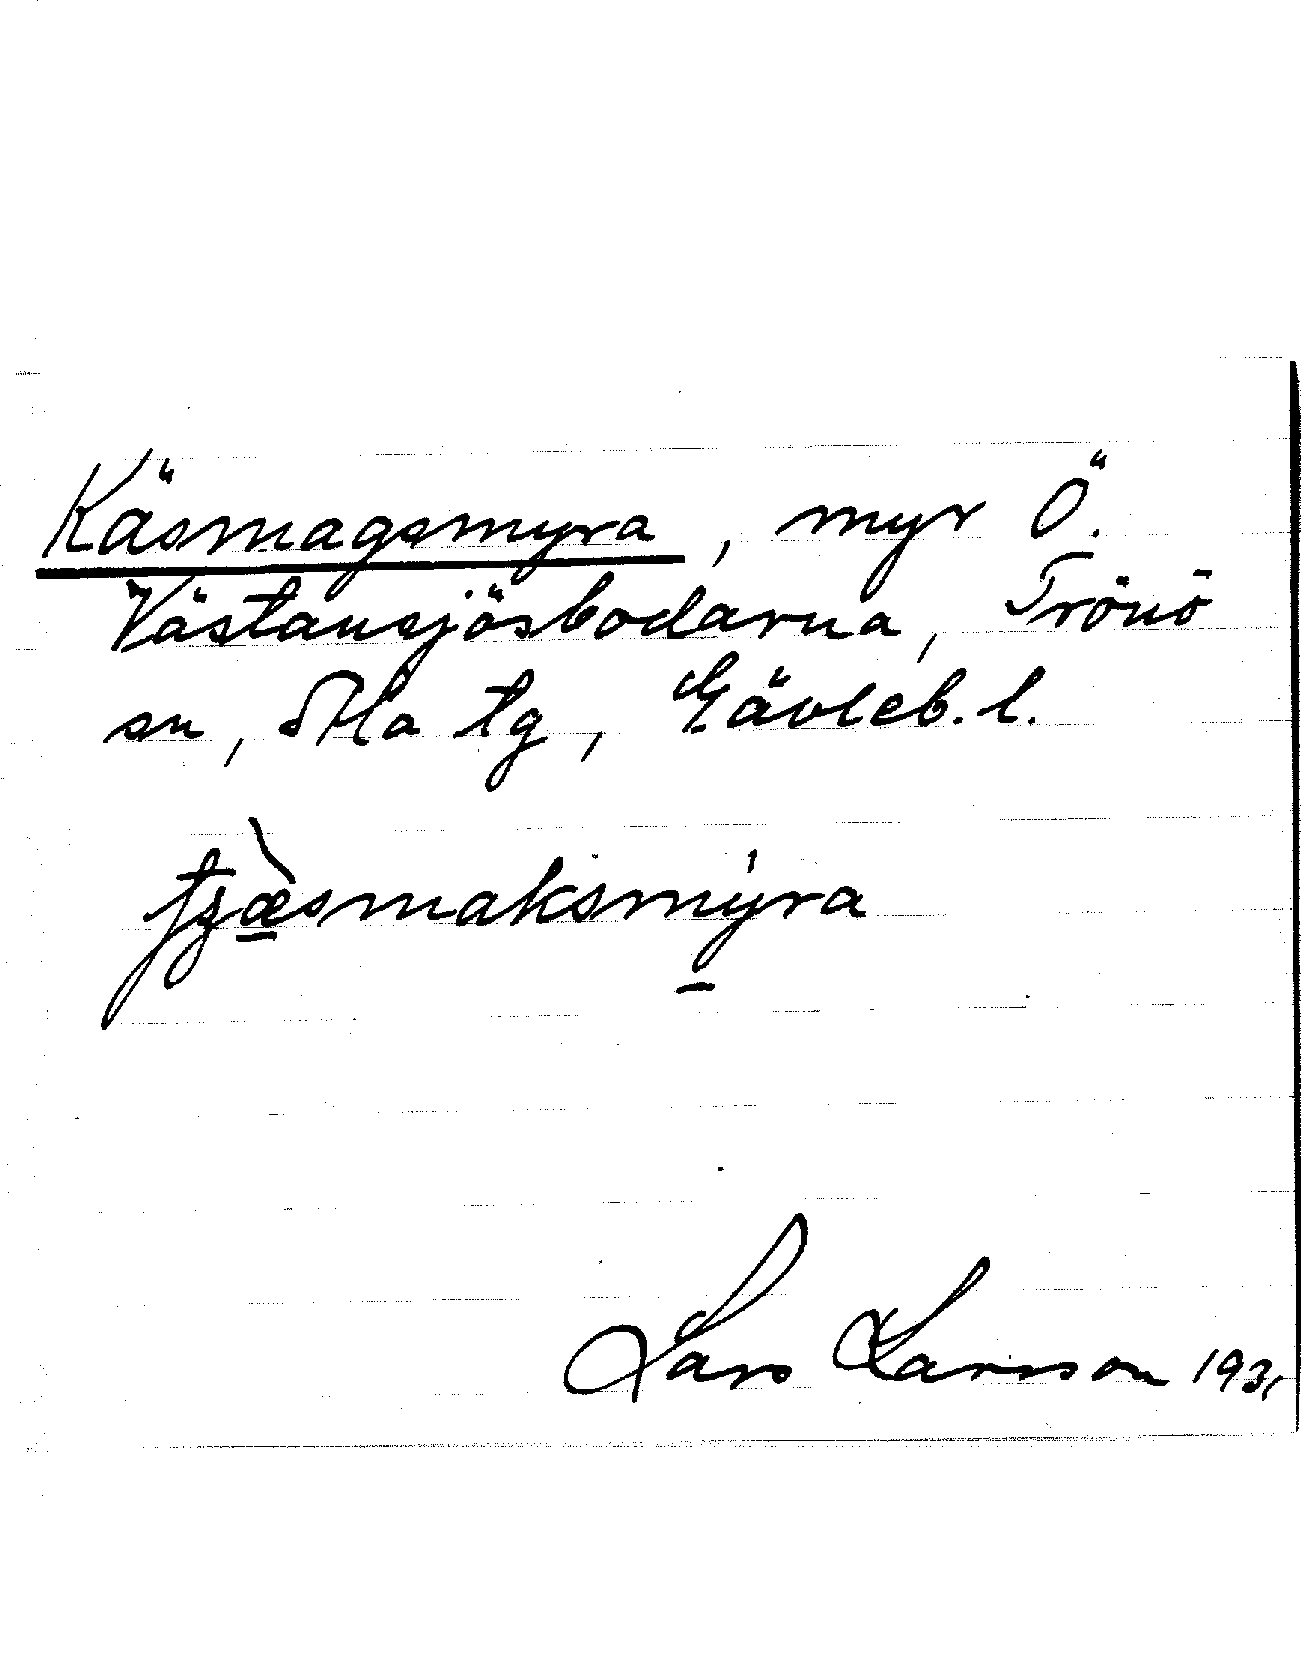 Käsmagsmyra, myr Ö.
Västansjösbodarna, Trönö
sn, Ala tg, Gävleb. l.
Lars Larsson 193